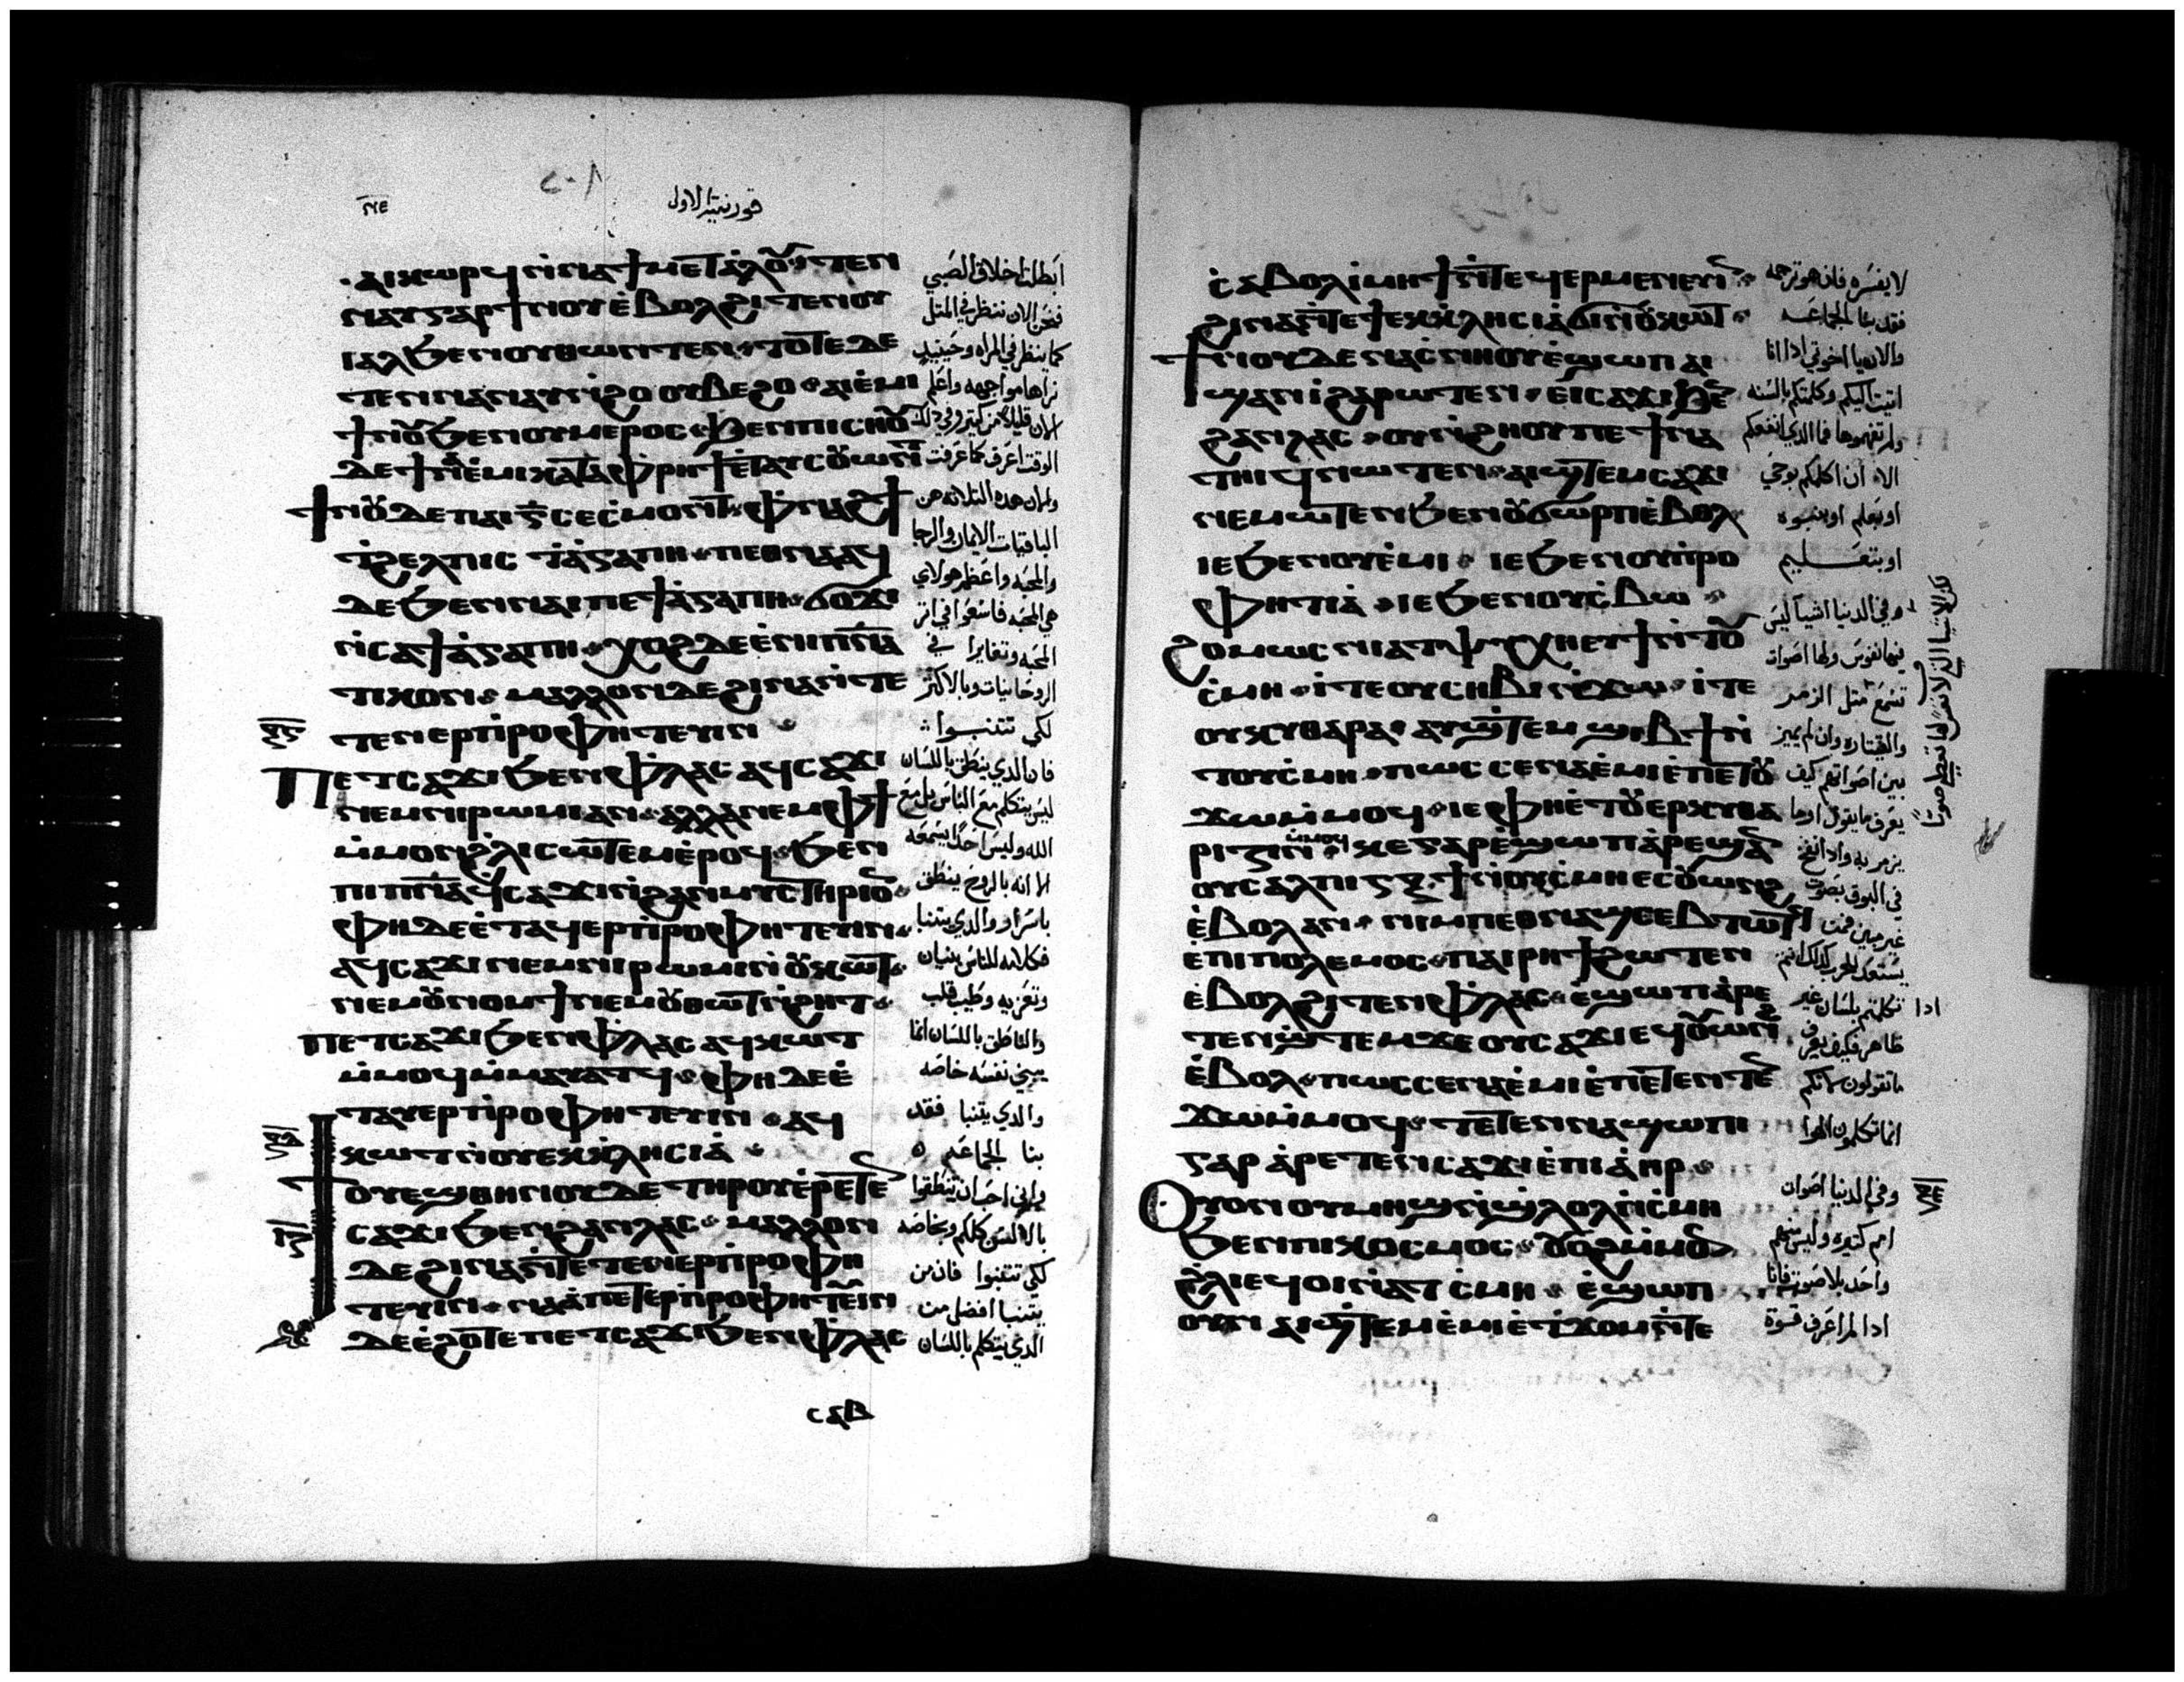 قورنتية الاولى
ⲁⲓⲕⲱⲣϥ ⲛ̀ⲛⲁϯⲙⲉⲧⲁ̀ⲗⲟⲩ ⲧⲉⲛ
ⲛⲁⲩ ⲅⲁⲣ ϯⲛⲟⲩ ⲉ̀ⲃⲟⲗ ϩⲓⲧⲉⲛ ⲟⲩ
ⲓⲁⲗ ϧⲉⲛ ⲟⲩⲑⲱⲛⲧⲉⲛ ⲧⲟⲧⲉ ⲇⲉ
ⲧⲉⲛⲛⲁⲛⲁⲩ ⲛ̀ϩⲟ ⲟⲩⲃⲉ ϩⲟ ⲁⲓⲉ̀ⲙⲓ
ϯⲛⲟⲩ ϧⲉⲛ ⲟⲩⲙⲉⲣⲟⲥ ϧⲉⲛ ⲡⲓⲥⲏⲟⲩ
ⲇⲉ ϯⲛⲁⲉ̀ⲙⲓ ⲕⲁⲧⲁ ⲫⲣⲏϯ ⲉⲧⲁⲩⲥⲟⲩⲱⲛⲧ
ϯⲛⲟⲩ ⲇⲉ ⲡⲁⲓ ⲅ̅ ⲥⲉϭⲙⲟⲛⲧ ⲫⲛⲁϩϯ
ϯϩⲉⲗⲡⲓⲥ ϯⲁ̀ⲅⲁⲡⲏ ⲡⲉⲑⲛⲁⲁϥ
ⲇⲉ ϧⲉⲛ ⲛⲁⲓ ⲡⲉ ϯⲁ̀ⲅⲁⲡⲏ ϭⲟϫⲓ
ⲛ̀ⲥⲁ ϯⲁ̀ⲅⲁⲡⲏ ⲭⲟϩ ⲇⲉ ⲉ̀ⲛⲓⲡⲛ̅ⲁ̅
ⲧⲓⲕⲟⲛ ⲙⲁⲗⲗⲟⲛ ⲇⲉ ϩⲓⲛⲁ ⲛ̀ⲧⲉ
ⲧⲉⲛⲉⲣⲡ̀ⲣⲟⲫⲏⲧⲉⲩⲓⲛ
ⲡⲉⲧⲥⲁϫⲓ ϧⲉⲛ ⲫⲗⲁⲥ ⲁϥⲥⲁϫⲓ
ⲛⲉⲙ ⲛⲓⲣⲱⲙⲓ ⲁⲛ ⲁⲗⲗⲁ ⲛⲉⲙ ⲫϯ
ⲙ̀ⲙⲟⲛ ϩⲗⲓ ⲥⲱⲧⲉⲙ ⲉ̀ⲣⲟϥ ϧⲉⲛ
ⲡⲓⲡⲛ̅ⲁ̅ ⲁϥⲥⲁϫⲓ ⲛ̀ϩⲁⲛⲙⲩⲥⲧⲏⲣⲓⲟⲛ
ⲫⲏ ⲇⲉ ⲉ̀ⲧⲁϥⲉⲣⲡ̀ⲣⲟⲫⲏⲧⲉⲩⲓⲛ
ⲁϥⲥⲁϫⲓ ⲛⲉⲙ ⲛⲓⲣⲱⲙⲓ ⲛ̀ⲟⲩⲕⲱⲧ
ⲛⲉⲙ ⲟⲩⲛⲟⲙϯ ⲛⲉⲙ ⲟⲩⲑⲱⲧ ⲛ̀ϩⲏⲧ
ⲡⲉⲧⲥⲁϫⲓ ϧⲉⲛ ⲫⲗⲁⲥ ⲁϥⲕⲱⲧ
ⲙ̀ⲙⲟϥ ⲙ̀ⲙⲁⲩⲁⲧϥ ⲫⲏ ⲇⲉ ⲉ̀
ⲧⲁϥⲉⲣⲡ̀ⲣⲟⲫⲏⲧⲉⲩⲓⲛ ⲁϥ
ⲕⲱⲧ ⲛ̀ⲟⲩⲉⲕⲕⲗⲏⲥⲓⲁ̀
ϯⲟⲩⲉϣ ⲑⲏⲛⲟⲩ ⲇⲉ ⲧⲏⲣⲟⲩ ⲉ̀ⲣⲉⲧⲉⲛ
ⲥⲁϫⲓ ϧⲉⲛ ϩⲁⲛⲗⲁⲥ ⲙⲁⲗⲗⲟⲛ
ⲇⲉ ϩⲓⲛⲁ ⲛ̀ⲧⲉⲧⲉⲛⲉⲣⲡ̀ⲣⲟⲫⲏ
ⲧⲉⲩⲓⲛ ⲛⲁⲁ̀ ⲡⲉⲧⲉⲣⲡ̀ⲣⲟⲫⲏⲧⲉⲩⲓⲛ
ⲇⲉ ⲉ̀ϩⲟⲧⲉ ⲡⲉⲧⲥⲁϫⲓ ϧⲉⲛ ⲫⲗⲁⲥ
ⲥⲁⲃ
ابطلت اخلاق الصبي
فنحن الان ننظر في المثل
كما ينظر في المراه وحينيد
نراها مواجهه واعلم
الان قليلا من كتير وفي دلك
الوقت اعرف كما عرفت
ولان هده التلاته هن
الباقيات الايمان والرجا
والمحبه واعظم هولاي
هي المحبه فاسعوا في اتر
المحبه وتغايروا في
الروحانيات وبالاكتر
لكي تتنبوا
فان الدي ينطق باللسان
ليس يتكلم مع الناس بل مع
الله وليس احدا يسمعه
الا انه بالروح ينطق
باسرار والدي يتنبا
فكلامه للناس بنيان
وتعزيه وطيب قلب
والناطق باللسان انما
يبني نفسه خاصه
والدي يتنبا فقد
بنا الجماعه
واني احب ان تنطقوا
بالالسن كلكم وبخاصه
لكي تتنبوا فان من
يتنبا افضل من
الدي يتكلم باللسان
ⲥⲁⲃⲟⲗ ⲓ̀ⲙⲏϯ ⲛ̀ⲧⲉϥⲉⲣⲙⲉⲛⲉⲩⲓⲛ
ϩⲓⲛⲁ ⲛ̀ⲧⲉ ϯⲉⲕⲕⲗⲏⲥⲓⲁ̀ ϭⲓ ⲛ̀ⲟⲩⲕⲱⲧ
ϯⲛⲟⲩ ⲇⲉ ⲛⲁⲥⲛⲏⲟⲩ ⲉ̀ϣⲱⲡ ⲁⲓ
ϣⲁⲛⲓ̀ ϩⲁⲣⲱⲧⲉⲛ ⲉⲓⲥⲁϫⲓ ϧⲉⲛ
ϩⲁⲛⲗⲁⲥ ⲟⲩ ⲛ̀ϩⲏⲟⲩ ⲡⲉ ϯⲛⲁ
ⲧⲏⲓϥ ⲛⲱⲧⲉⲛ ⲁⲓϣⲧⲉⲙⲥⲁϫⲓ
ⲛⲉⲙⲱⲧⲉⲛ ϧⲉⲛ ⲟⲩϭⲱⲣⲡ ⲉ̀ⲃⲟⲗ
ⲓⲉ ϧⲉⲛ ⲟⲩⲉ̀ⲙⲓ ⲓⲉ ϧⲉⲛ ⲟⲩⲡ̀ⲣⲟ
ⲫⲏⲧⲓⲁ̀ ⲓⲉ ϧⲉⲛ ⲟⲩⲥ̀ⲃⲱ
ϩⲟⲙⲱⲥ ⲛⲓⲁⲧⲯⲩⲭⲏ ⲉⲩϯ ⲛ̀ⲧⲟⲩ
ⲥ̀ⲙⲏ ⲓ̀ⲧⲉ ⲟⲩⲥⲏⲃⲓ ⲛ̀ϫⲱ ⲓ̀ⲧⲉ
ⲟⲩⲕⲩⲑⲁⲣⲁ ⲁⲩϣⲧⲉⲙϣⲓⲃϯ ⲛ̀
ⲧⲟⲩⲥ̀ⲙⲏ ⲡⲱⲥ ⲥⲉⲛⲁⲉ̀ⲙⲓ ⲉ̀ⲡⲉⲧⲟⲩ
ϫⲱ ⲙ̀ⲙⲟϥ ⲓⲉ ⲫⲏ ⲉ̀ⲧⲟⲩⲉⲣⲕⲩⲑⲁ
ⲣⲓⲍⲓⲛ ⲙ̀ⲙⲟϥ ⲕⲉ ⲅⲁⲣ ⲉ̀ϣⲱⲡ ⲁ̀ⲣⲉϣⲁⲛ
ⲟⲩⲥⲁⲗⲡⲓⲅⲝ ϯ ⲛ̀ⲟⲩⲥ̀ⲙⲏ ⲉⲥⲟⲩⲱⲛϩ
ⲉ̀ⲃⲟⲗ ⲁⲛ ⲛⲓⲙ ⲡⲉⲑⲛⲁϣⲥⲉⲃⲧⲱⲧϥ
ⲉ̀ⲡⲓⲡⲟⲗⲉⲙⲟⲥ ⲡⲁⲓⲣⲏϯ ϩⲱⲧⲉⲛ
ⲉ̀ⲃⲟⲗ ϩⲓⲧⲉⲛ ⲫⲗⲁⲥ ⲉ̀ϣⲱⲡ ⲁ̀ⲣⲉ
ⲧⲉⲛϣⲧⲉⲙϫⲉ ⲟⲩⲥⲁϫⲓ ⲉϥⲟⲩⲱⲛϩ
ⲉ̀ⲃⲟⲗ ⲡⲱⲥ ⲥⲉⲛⲁⲉ̀ⲙⲓ ⲉ̀ⲡⲉⲧⲉⲧⲉⲛ
ϫⲱ ⲙ̀ⲙⲟϥ ⲧⲉⲧⲉⲛⲛⲁϣⲱⲡⲓ
ⲅⲁⲣ ⲁ̀ⲣⲉⲧⲉⲛⲥⲁϫⲓ ⲉ̀ⲡⲓⲁ̀ⲏⲣ
ⲟⲩⲟⲛ ⲟⲩⲙⲏϣ ⲛ̀ϣⲗⲟⲗ ⲛ̀ⲥ̀ⲙⲏ
ϧⲉⲛ ⲡⲓⲕⲟⲥⲙⲟⲥ ⲟⲩⲟϩ ⲙ̀ⲙⲟⲛ
ϩ̀ⲗⲓ ⲉϥⲟⲓ ⲛ̀ⲁⲧⲥ̀ⲙⲏ ⲉ̀ϣⲱⲡ
ⲟⲩⲛ ⲁⲓϣⲧⲉⲙⲉ̀ⲙⲓ ⲉ̀ⲧϫⲟⲙ ⲛ̀ⲧⲉ
لا يفسره فان هو ترجمه
فقد بنا الجماعه
والان يا اخوتي ادا انا
اتيت اليكم وكلمتكم بالسنه
ولم تفهموها فما الدي انفعكم
الا ان اكلمكم بوحي
او بعلم او بنبوه
او بتعليم
وفي الدنيا اشيا ليس
فيها نفوس ولها اصوات
تسمع متل الزمر
والقيتاره وان لم يميز
بين اصواتهم كيف
يعرف ما يقول او ما
يزمر به وادا نفخ
في البوق بصوت
غير مبين فمن
يستعد للحرب كدلك انتم
ادا تكلمتم بلسان غير
ظاهر فكيف يعرف
ما تقولون لانكم
انما تكلمون الهوا
وفي الدنيا اصوات
امم كتيره وليس منهم
واحد بلا صوت فانا
ادا لم اعرف قوة